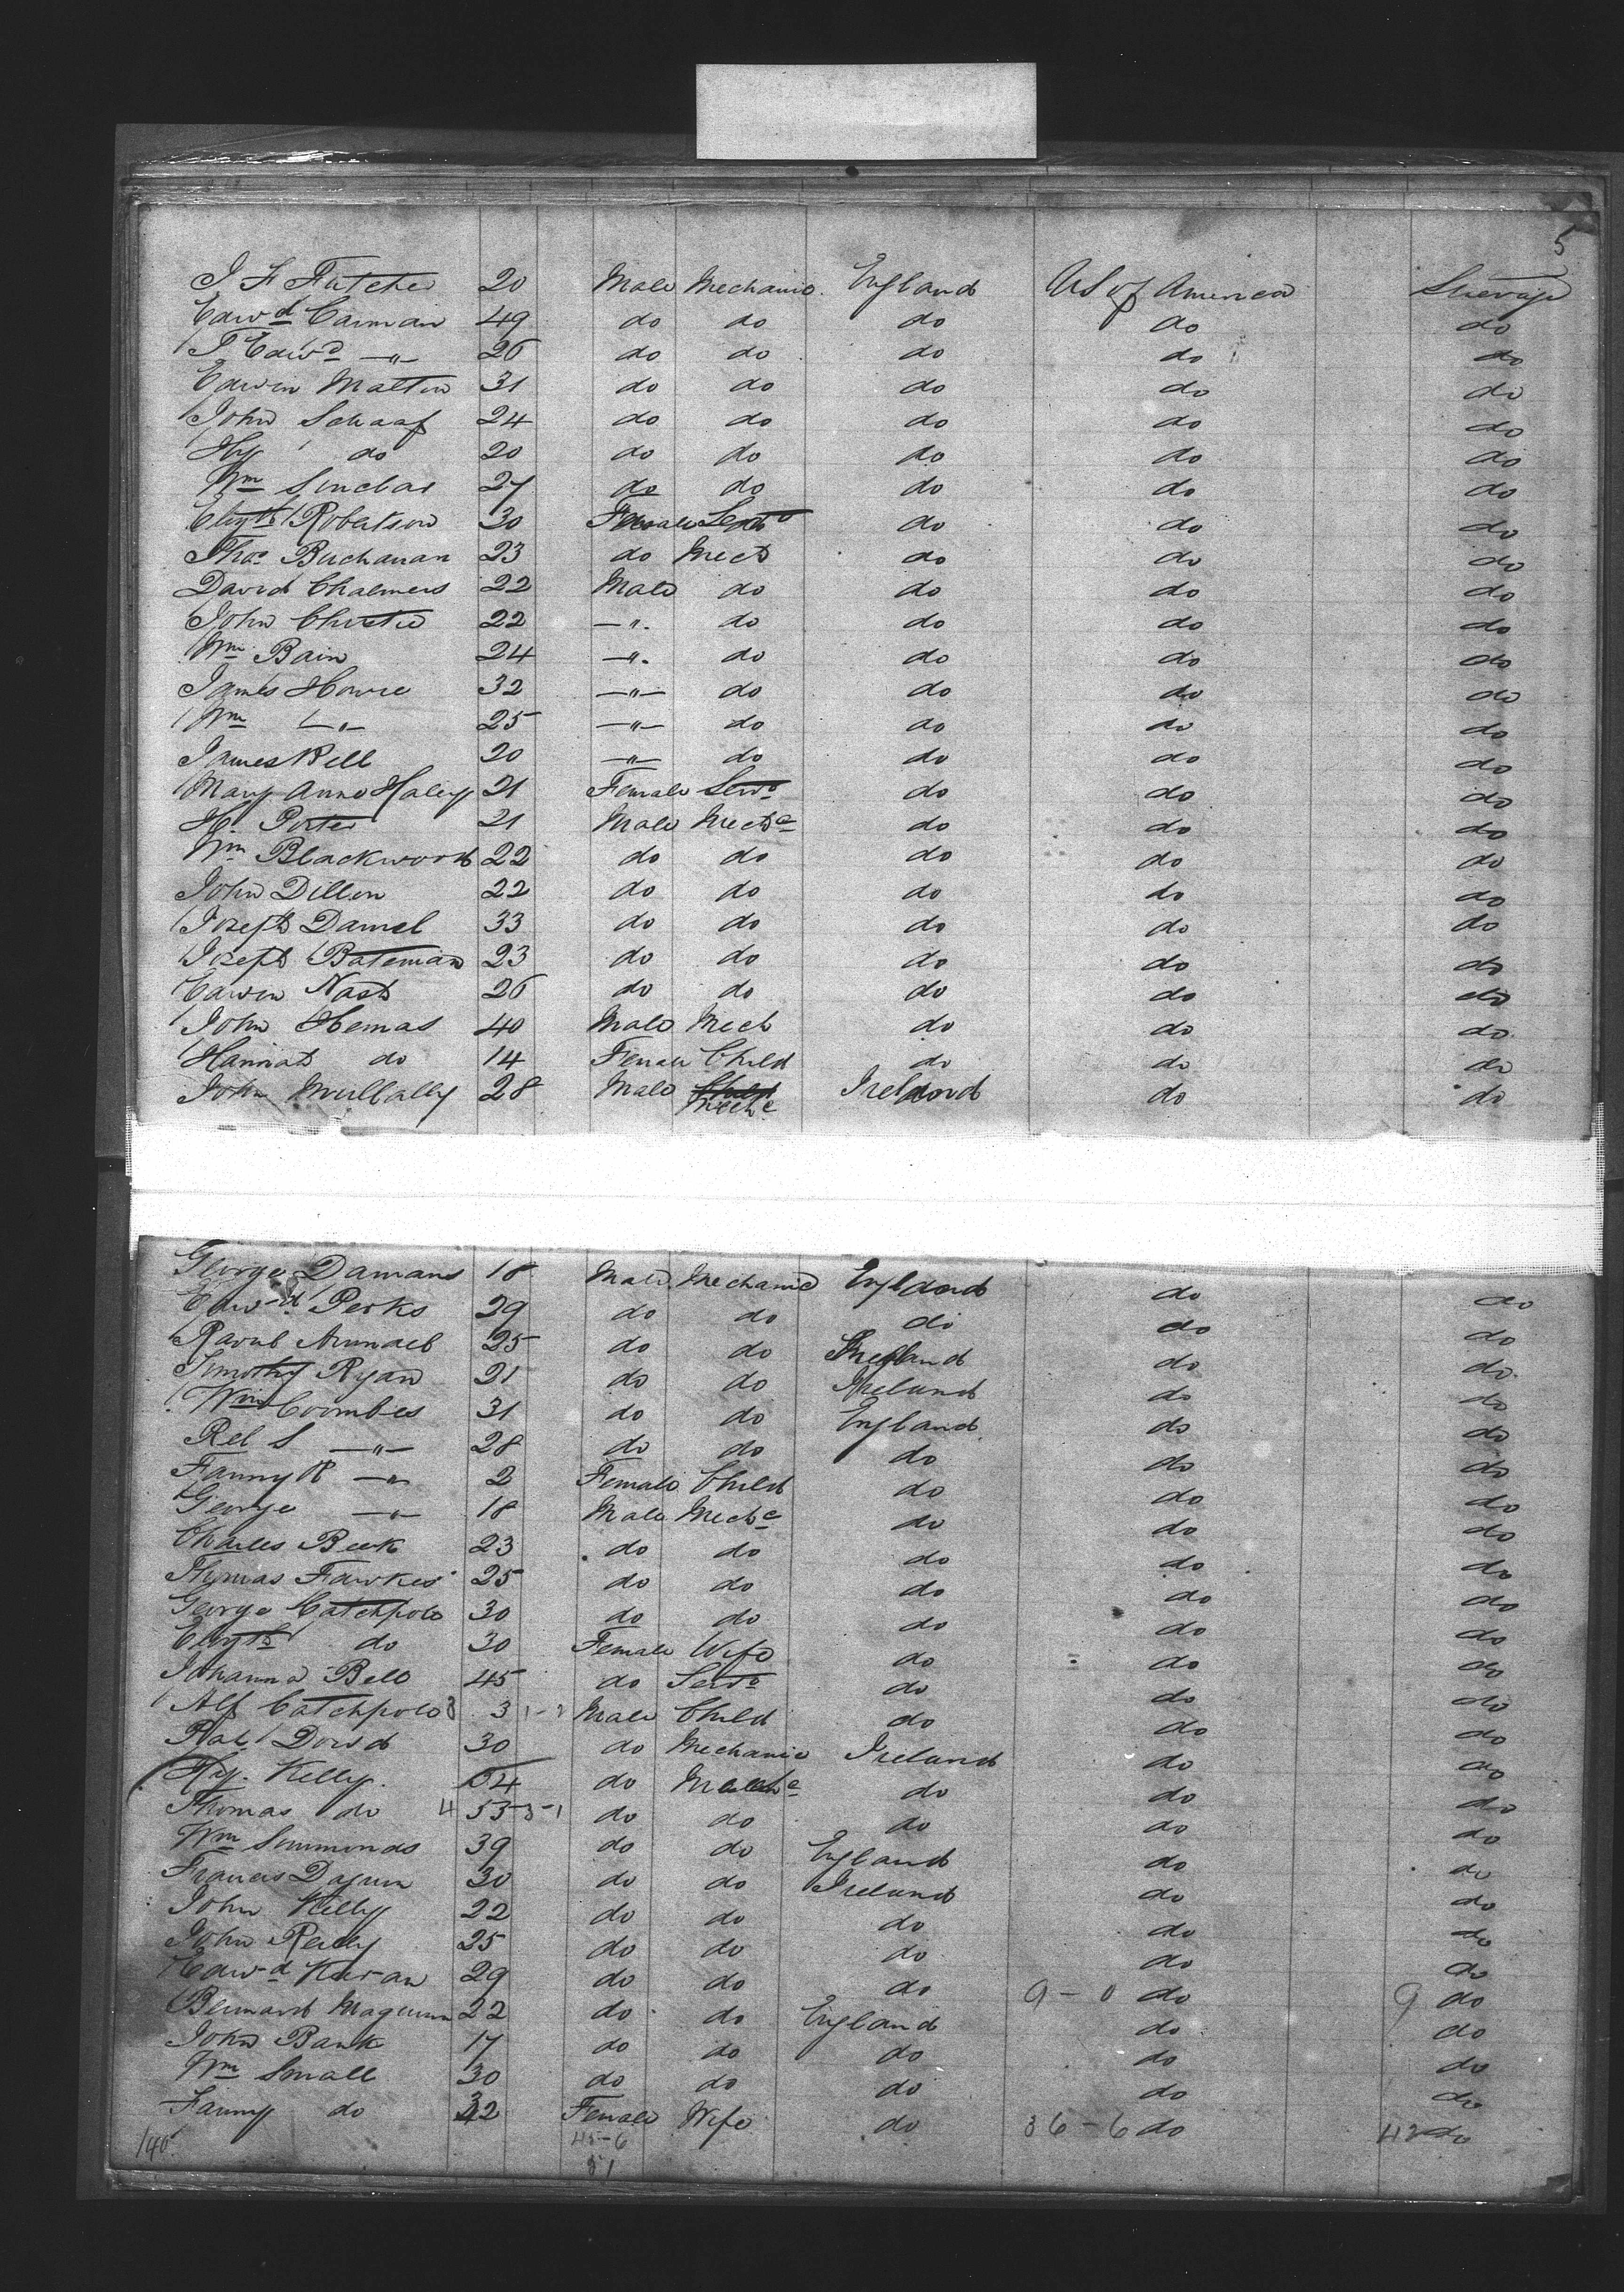 5
J F Fatcher 20 Male Mechanic England US of America Steerage
Edwd Carman 49 do do do do do
T Edwd —"— 26 do do do do do
Edwin Malten 31 do do do do do
John Schaaf 24 do do do do do
Hy do 20 do do do do do
Wm Sinclar 27 do do do do do
Elizth Robertson 30 Female do do do
Thos Buchanan 23 do Mect do do do
David Chalmers 22 Male do do do do
John Christie 22 —". do do do do
Wm Bain 24 —". do do do do
James Howie 32 —"— do do do do
Wm —"— 25 —"— do do do do
James Bell 20 —"— do do do do
Mary Anne Haley 21 Female Servt do do do
H Porter 21 Male Mechc do do do
Wm Blackwood 22 do do do do do
John Dillon 22 do do do do do
Joseph Daniel 33 do do do do do
Joseph Bateman 23 do do do do do
Edwin Nash 26 do do do do do
John Hemas 40 Male Mech do do do
Hannah do 14 Female Child do do do
John Mullally 28 Male Child Mechc Ireland do do
George Damans 18 Male Mechanic England do do
Edwd Perks 29 do do do do do
25 do do England do do
Timothy Ryan 21 do do Ireland do do
Wm Coombes 31 do do England do do
S —"— 28 do do do do do
Fanny R —"— 2 Female Child do do do
George —"— 18 Male Mechc do do do
Charles Beek 23 do do do do do
Thomas Fawkes 25 do do do do do
George Catchpole 30 do do do do do
Elizth do 30 Female Wife do do do
Johanna Bell 45 do Servt do do do
Alf Catchpole 3 Male Child do do do
Pat Dowd 30 do Mechanic Ireland do do
Hy. Kelly. 54 do do do do
Thomas do 4 53 do do do do do
Wm Simmonds 39 do do England do do
Francis 30 do do Ireland do do
John Kelly 22 do do do do do
John Reily 25 do do do do do
Edwd Kieran 29 do do do 9 - 0 do 9 do
Bernard 22 do do England do do
John Bank 17 do do do do do
Wm Small 30 do do do do do
Fanny do 32 Female Wife do 36 - 6 do 42 do
140 45-6
81